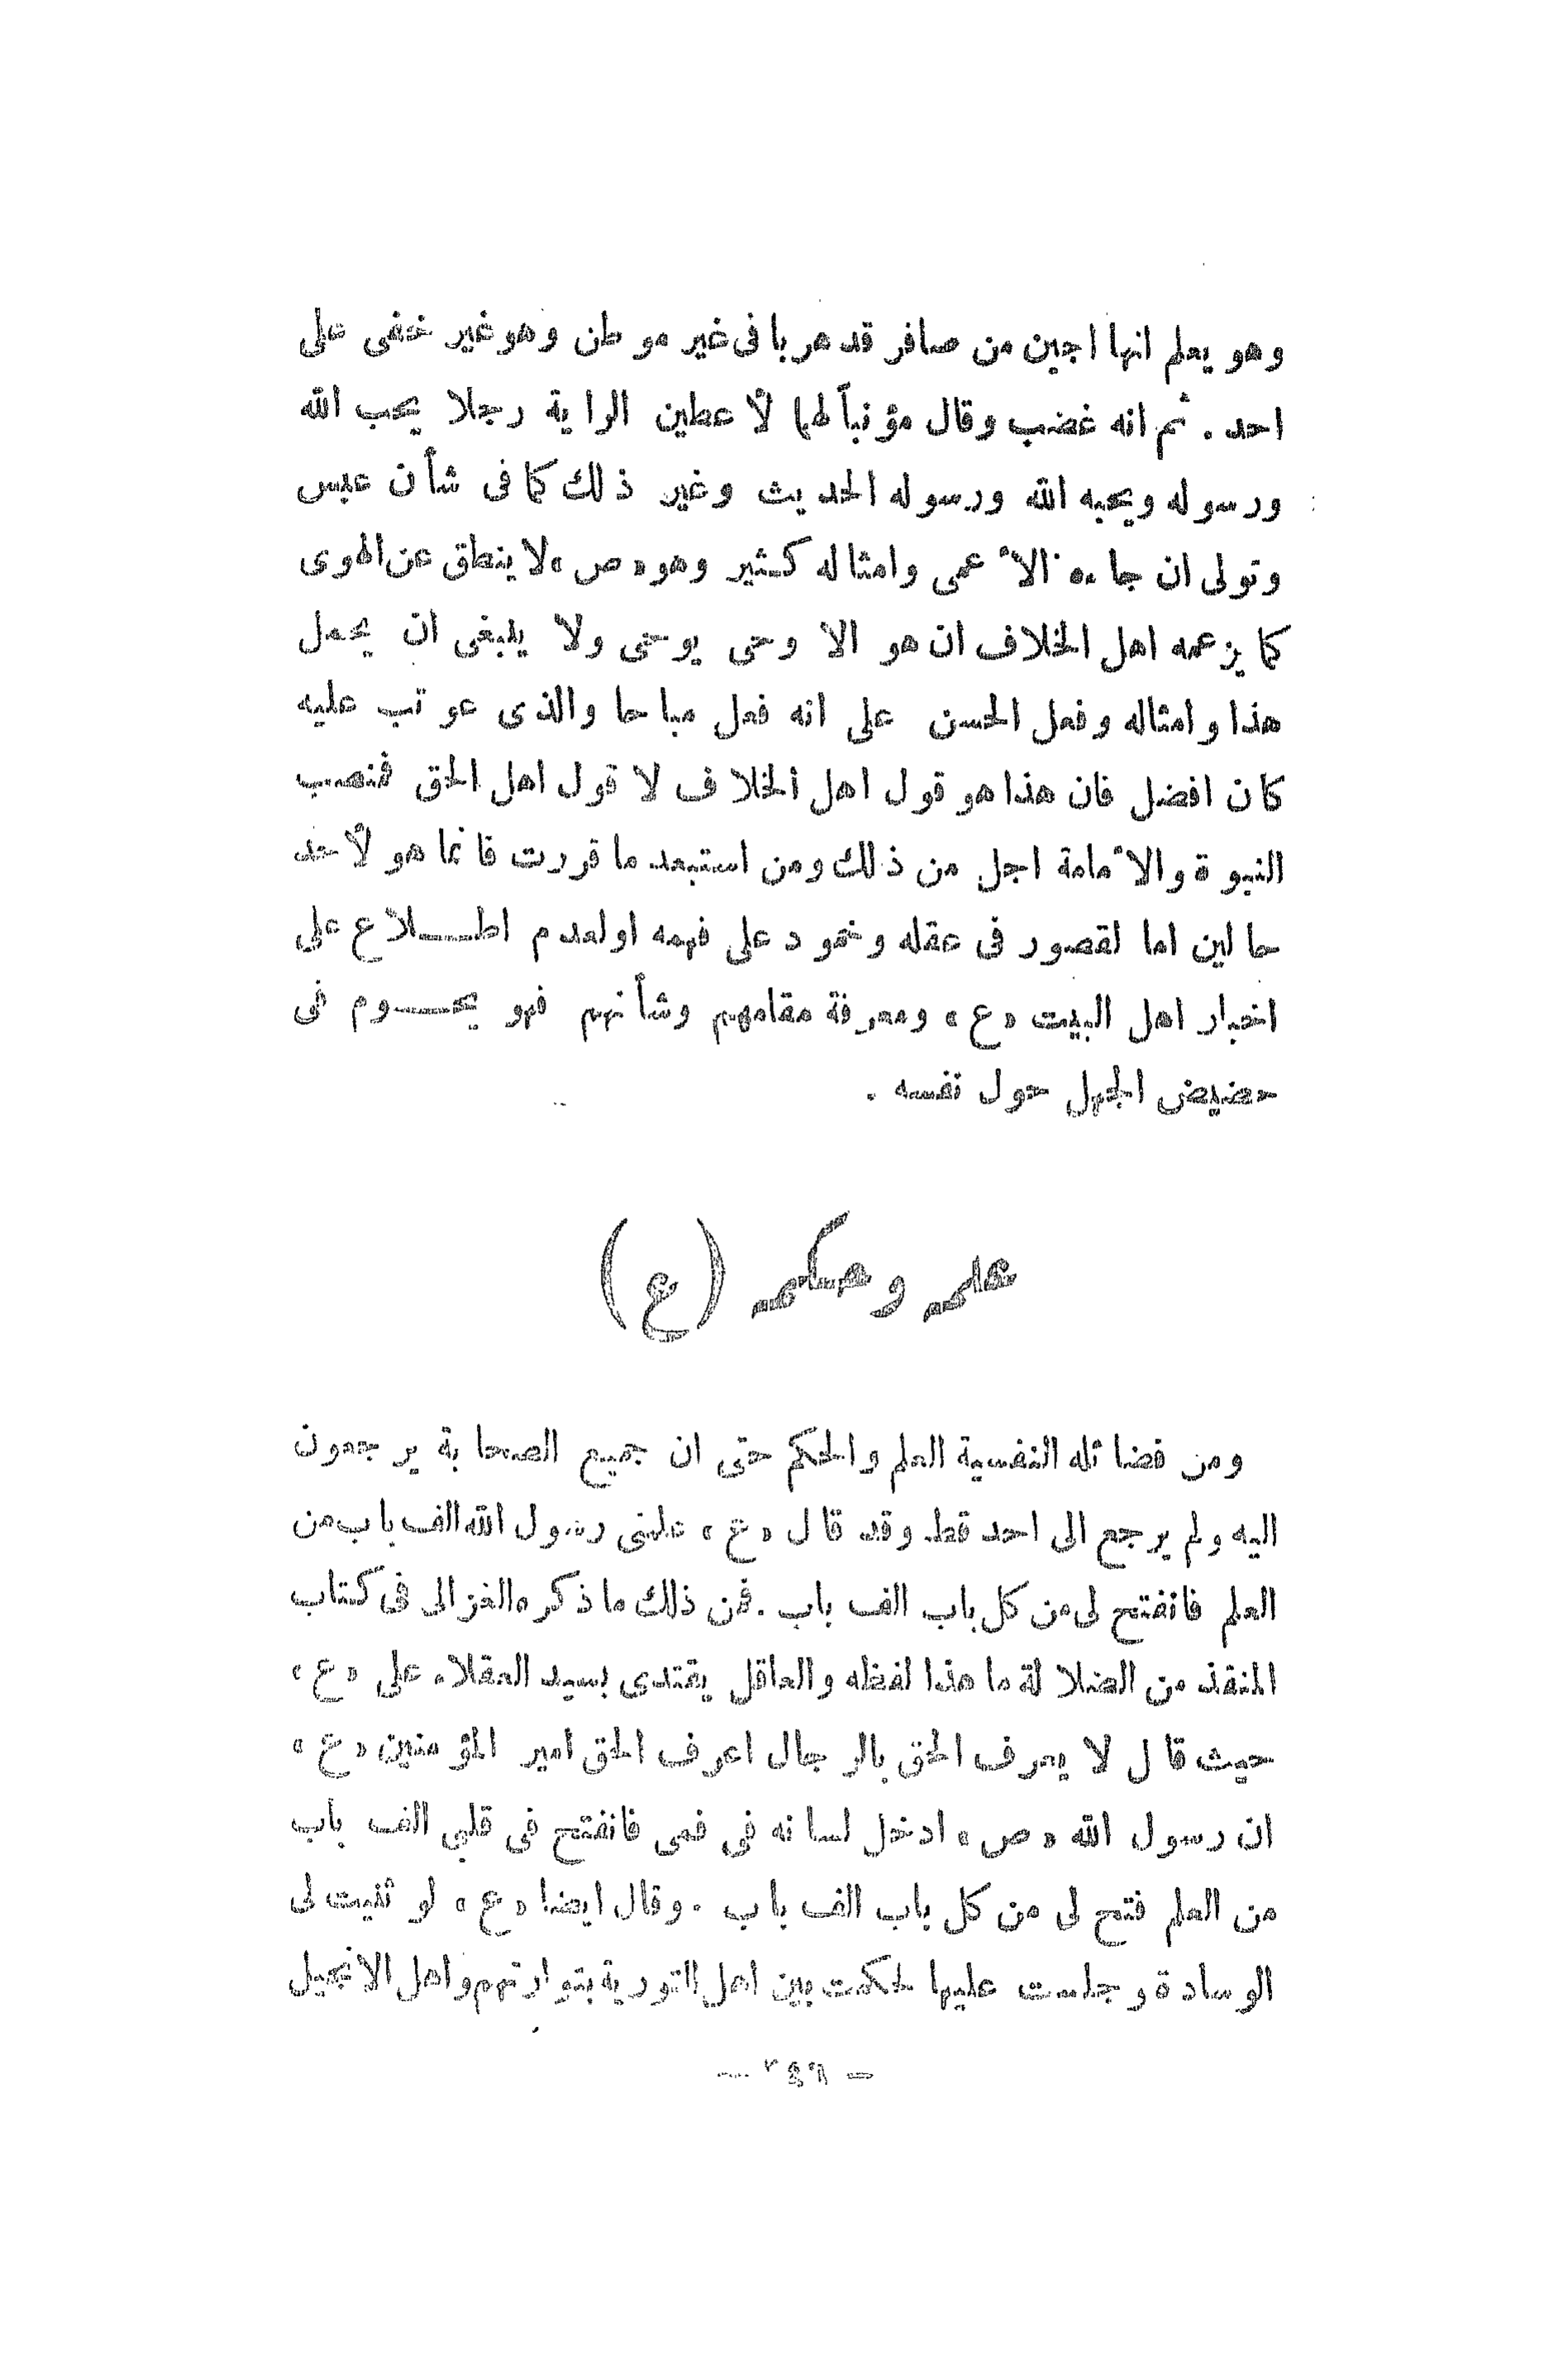 وهو يعلم انها اجبن من صافر قد هربا فى غير موطن وهو غير خفى على
احد . ثم انه غضب وقال مؤنباً لهما لأعطين الراية رجلا يحب الله
ورسوله ويحبه الله ورسوله الحديث وغير ذلك كما فى شأن عبس
وتولى ان جاءه الأعمى وامثاله كثير وهو «ص» لا ينطق عن الهوى
كما يزعمه اهل الخلاف ان هو الا وحى يوحى ولا ينبغى ان يحمل
هذا وامثاله وفعل الحسن على انه فعل مباحا والذى عوتب عليه
كان افضل فان هذا هو قول اهل الخلاف لا قول اهل الحق فمنصب
النبوة والأمامة اجل من ذلك ومن استبعد ما قررت فانما هو لأحد
حالين اما لقصور فى عقله وخمود على فهمه او لعدم اطـــلاع على
اخبار اهل البيت «ع» ومعرفة مقامهم وشأنهم فهو يحـــوم فى
حضيض الجهل حول نفسه .
علمه وحكمه (ع)
ومن فضائله النفسية العلم والحكم حتى ان جميع الصحابة يرجعون
اليه ولم يرجع الى احد قط وقد قال «ع» علمنى رسول الله الف باب من
العلم فانفتح لى من كل باب الف باب . فمن ذلك ما ذكره الغزالى فى كتاب
المنقذ من الضلالة ما هذا لفظه والعاقل يقتدى بسيد العقلاء على «ع»
حيث قال لا يعرف الحق بالرجال اعرف الحق امير المؤمنين «ع»
ان رسول الله «ص» ادخل لسانه فى فمى فانفتح فى قلبى الف باب
من العلم فتح لى من كل باب الف باب . وقال ايضا «ع» لو ثنيت لى
الوسادة وجلست عليها لحكمت بين اهل التورية بتوارتهم واهل الانجيل